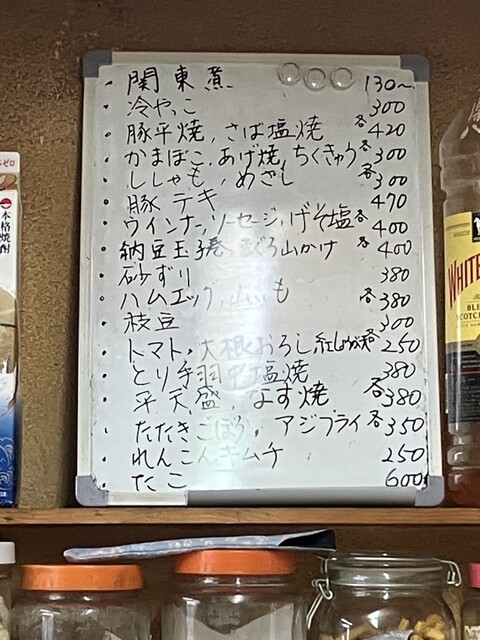 関東煮 130〜
冷やっこ 300
豚平焼、さば塩焼 各420
かまぼこ、あげ焼、ちくきゅう 各300
ししゃも、めざし 各300
豚テキ 470
ウインナ、ソーセージ、げそ塩 各400
納豆玉子巻、まぐろ山かけ 各400
砂ずり 380
ハムエッグ、山いも 各380
枝豆 300
トマト、大根おろし 紅しょうが天 各250
とり手羽中塩焼 380
平天盛、なす焼 各380
たたきごぼう、アジフライ 各350
れんこんキムチ 250
たこ 600
本格焼酎
WHITE
SCOTCH